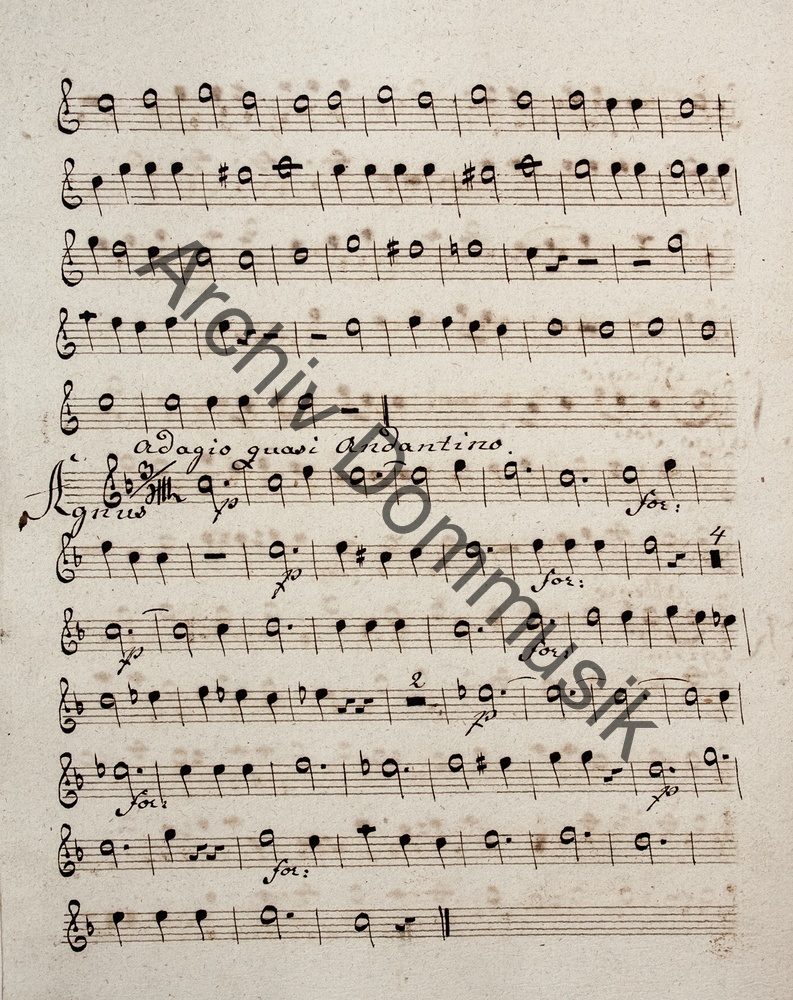 Adagio quasi Andantino.
Agnus
3
p
for:
p
for:
4
p
for:
2
p
for:
p
for:
Archiv Dommusik